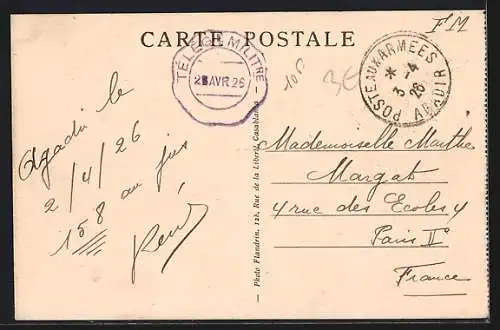 CARTE POSTALE
FM
TÉLÉGIE MILITRE
2 AVR 26
POSTE AUX ARMEES
* 3 -4
26
AGADIR
10F
3E
Agadir le
2/4/26
158 au jus
René
Mademoiselle Marthe
Margat
4 rue des Ecoles 4
Paris II
France
Photo Flandrin, 128, Rue de la Liberté, Casablanca